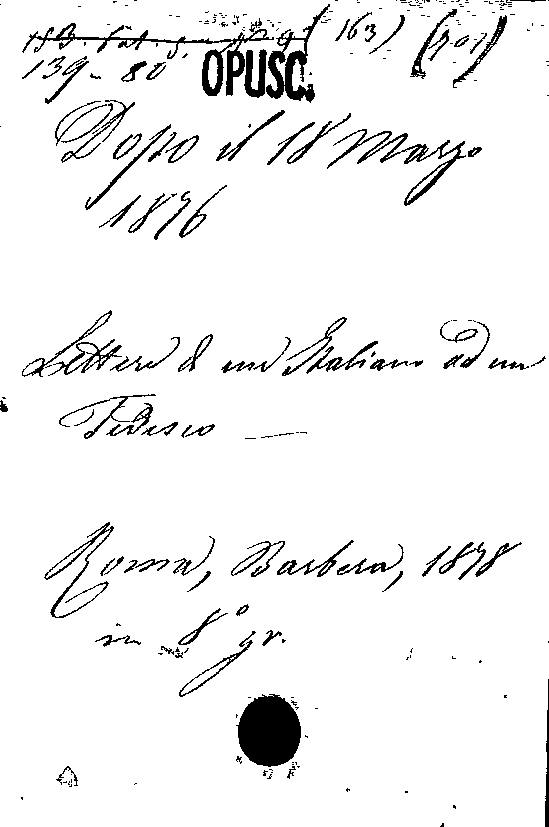 (163) (701)
139-80 OPUSC.
Dopo il 18 Marzo
1876
Lettere di un Italiano ad un
Tedesco —
Roma, Barbera, 1878
in 8° gr.